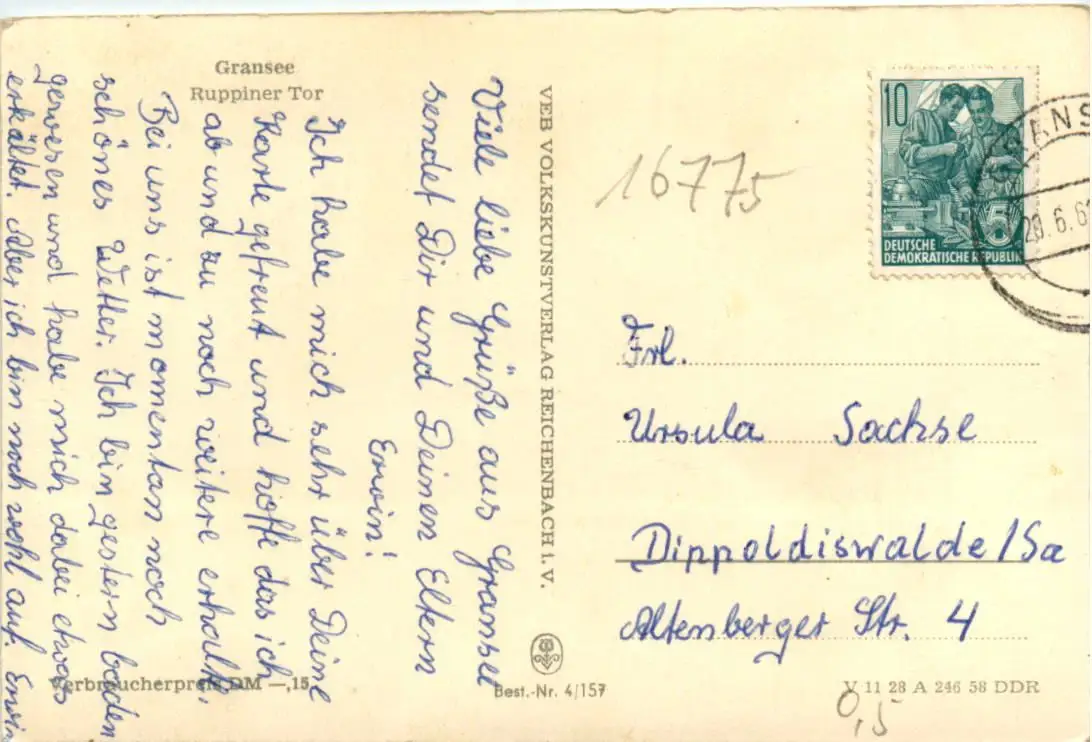 Gransee
Ruppiner Tor
Viele liebe Grüße aus Gransee
sendet Dir und Deinen Eltern
Erwin!
Ich habe mich sehr über Deine
Karte gefreut und hoffe das ich
ab und zu noch weitere erhalte.
Bei uns ist momentan noch
schönes Wetter. Ich bin gestern baden
gewesen und habe mich dabei etwas
erkältet. Aber ich bin noch wohl auf. Erwin
Verbraucherpreis DM —,15
VEB VOLKSKUNSTVERLAG REICHENBACH i. V.
Best.-Nr. 4/157
16775
10
5
DEUTSCHE
DEMOKRATISCHE REPUBLIK
GRANS
20.6.6
Frl.
Ursula Sachse
Dippoldiswalde/Sa
Altenberger Str. 4
V 11 28 A 246 58 DDR
0,5